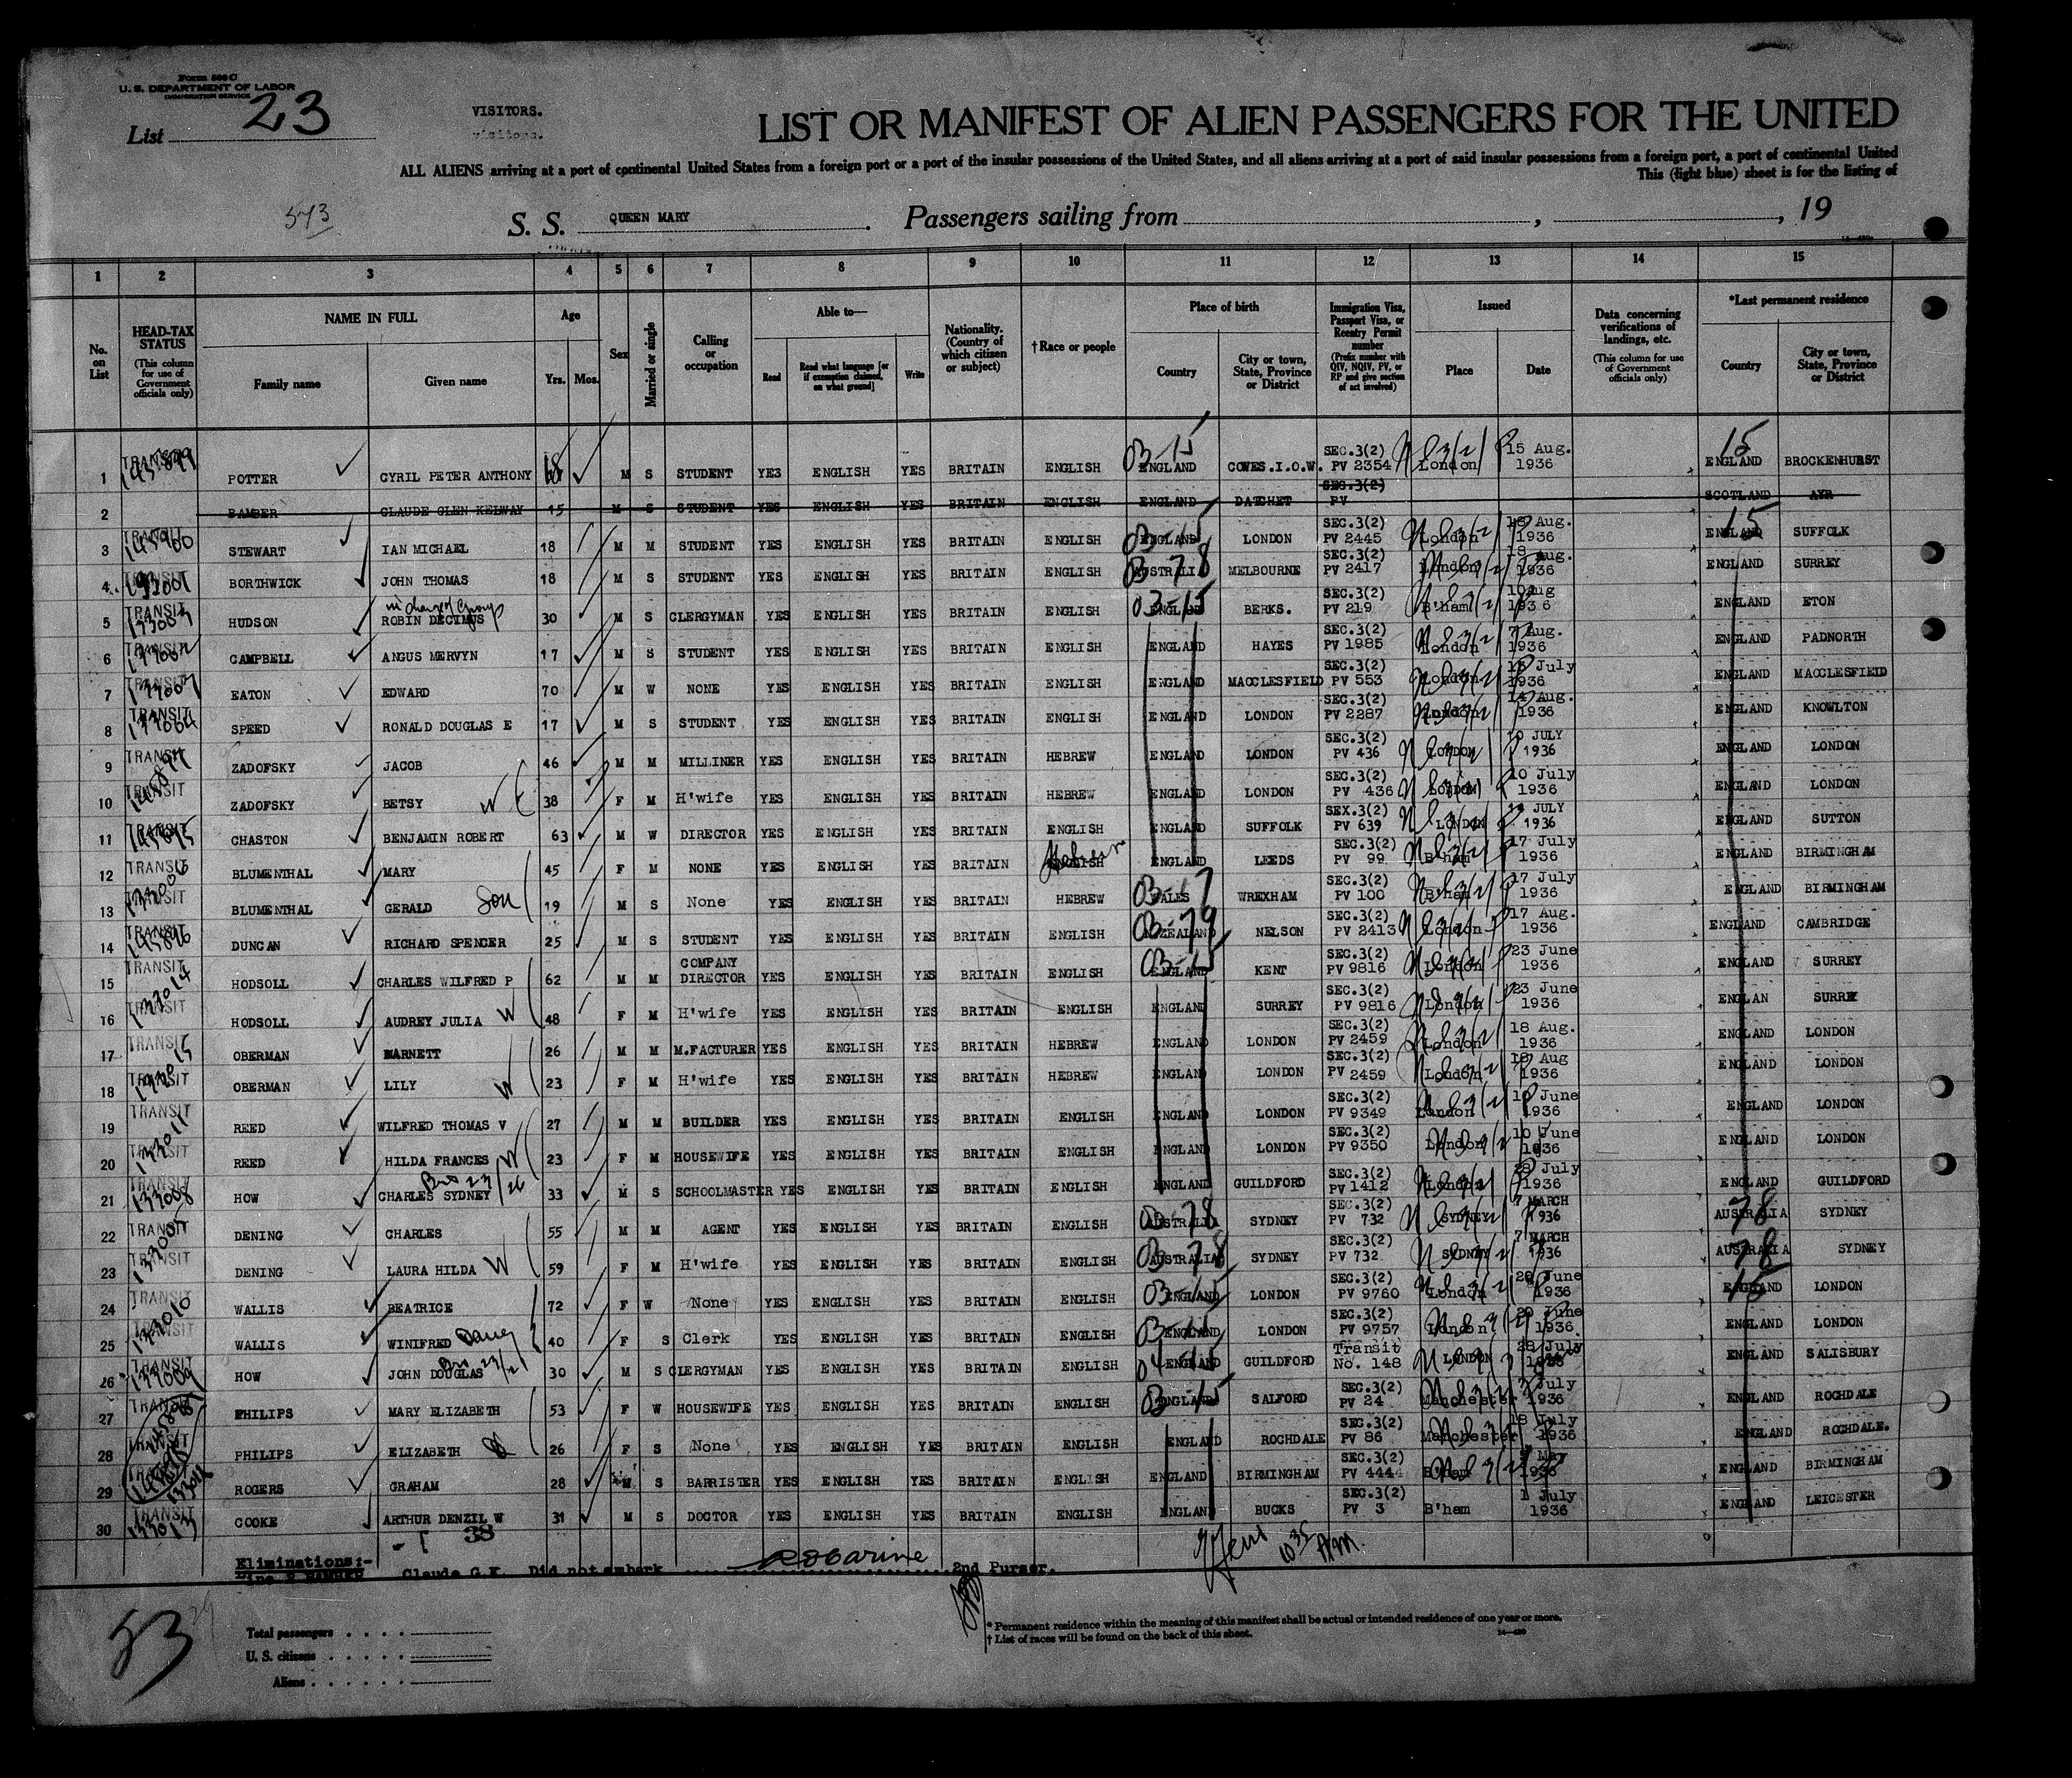 Form 500 C
U. S. DEPARTMENT OF LABOR
IMMIGRATION SERVICE
List 23
VISITORS.
visitors.
LIST OR MANIFEST OF ALIEN PASSENGERS FOR THE UNITED
ALL ALIENS arriving at a port of continental United States from a foreign port or a port of the insular possessions of the United States, and all aliens arriving at a port of said insular possessions from a foreign port, a port of continental United
This (light blue) sheet is for the listing of
573
S. S. QUEEN MARY . Passengers sailing from , , 19
1 2 3 4 5 6 7 8 9 10 11 12 13 14 15
No. on List
HEAD-TAX STATUS (This column for use of Government officials only)
NAME IN FULL Family name Given name
Age Yrs. Mos.
Sex
Married or single
Calling or occupation
Able to— Read Read what language [or if exemption claimed, on what ground] Write
Nationality. (Country of which citizen or subject)
† Race or people
Place of birth Country City or town, State, Province or District
Immigration Visa, Passport Visa, or Reentry Permit number (Prefix number with QIV, NQIV, PV, or RP and give section of act involved)
Issued Place Date
Data concerning verifications of landings, etc. (This column for use of Government officials only)
*Last permanent residence Country City or town, State, Province or District
1 TRANSIT POTTER CYRIL PETER ANTHONY 18 M S STUDENT YES ENGLISH YES BRITAIN ENGLISH 03-15 ENGLAND COWES.I.O.W. SEC.3(2) PV 2354 London 15 Aug. 1936 15 ENGLAND BROCKENHURST
2 BAMBER CLAUDE GLEN KELWAY 15 M S STUDENT YES ENGLISH YES BRITAIN ENGLISH ENGLAND DATCHET SEC.3(2) PV SCOTLAND AYR
3 TRANSIT STEWART IAN MICHAEL 18 M M STUDENT YES ENGLISH YES BRITAIN ENGLISH 03-15 ENGLAND LONDON SEC.3(2) PV 2445 London 18 Aug. 1936 15 ENGLAND SUFFOLK
4 TRANSIT BORTHWICK JOHN THOMAS 18 M S STUDENT YES ENGLISH YES BRITAIN ENGLISH 03-78 AUSTRALIA MELBOURNE SEC.3(2) PV 2417 London 18 Aug. 1936 ENGLAND SURREY
5 TRANSIT HUDSON in charge of Group ROBIN DECIMUS 30 M S CLERGYMAN YES ENGLISH YES BRITAIN ENGLISH 03-15 ENGLAND BERKS. SEC.3(2) PV 219 B'ham 10 Aug 1936 ENGLAND ETON
6 TRANSIT CAMPBELL ANGUS MERVYN 17 M S STUDENT YES ENGLISH YES BRITAIN ENGLISH ENGLAND HAYES SEC.3(2) PV 1985 London 7 Aug. 1936 ENGLAND PADNORTH
7 TRANSIT EATON EDWARD 70 M W NONE YES ENGLISH YES BRITAIN ENGLISH ENGLAND MACCLESFIELD SEC.3(2) PV 553 London July 1936 ENGLAND MACCLESFIELD
8 TRANSIT SPEED RONALD DOUGLAS E 17 M S STUDENT YES ENGLISH YES BRITAIN ENGLISH ENGLAND LONDON SEC.3(2) PV 2287 London 14 Aug. 1936 ENGLAND KNOWLTON
9 TRANSIT ZADOFSKY JACOB 46 M M MILLINER YES ENGLISH YES BRITAIN HEBREW ENGLAND LONDON SEC.3(2) PV 436 LONDON 10 JULY 1936 ENGLAND LONDON
10 TRANSIT ZADOFSKY BETSY W 38 F M H'wife YES ENGLISH YES BRITAIN HEBREW ENGLAND LONDON SEC.3(2) PV 436 London 10 July 1936 ENGLAND LONDON
11 TRANSIT CHASTON BENJAMIN ROBERT 63 M W DIRECTOR YES ENGLISH YES BRITAIN ENGLISH ENGLAND SUFFOLK SEX.3(2) PV 639 LONDON JULY 1936 ENGLAND SUTTON
12 TRANSIT BLUMENTHAL MARY 45 F M NONE YES ENGLISH YES BRITAIN Hebrew ENGLAND LEEDS SEC.3(2) PV 99 B'ham 17 July 1936 ENGLAND BIRMINGHAM
13 TRANSIT BLUMENTHAL GERALD Son 19 M S None YES ENGLISH YES BRITAIN HEBREW 03-17 WALES WREXHAM SEC.3(2) PV 100 B'ham 17 July 1936 ENGLAND BIRMINGHAM
14 TRANSIT DUNCAN RICHARD SPENCER 25 M S STUDENT YES ENGLISH YES BRITAIN ENGLISH 03-79 N.ZEALAND NELSON SEC.3(2) PV 2413 London 17 Aug. 1936 ENGLAND CAMBRIDGE
15 TRANSIT HODSOLL CHARLES WILFRED P 62 M M COMPANY DIRECTOR YES ENGLISH YES BRITAIN ENGLISH 03-15 ENGLAND KENT SEC.3(2) PV 9816 London 23 June 1936 ENGLAND SURREY
16 TRANSIT HODSOLL AUDREY JULIA W 48 F M H'wife YES ENGLISH YES BRITAIN ENGLISH ENGLAND SURREY SEC.3(2) PV 9816 London 23 June 1936 ENGLAN SURREY
17 TRANSIT OBERMAN BARNETT 26 M M M.FACTURER YES ENGLISH YES BRITAIN HEBREW ENGLAND LONDON SEC.3(2) PV 2459 London 18 Aug. 1936 ENGLAND LONDON
18 TRANSIT OBERMAN LILY W 23 F M H'wife YES ENGLISH YES BRITAIN HEBREW ENGLAND LONDON SEC.3(2) PV 2459 London 18 Aug 1936 ENGLAND LONDON
19 TRANSIT REED WILFRED THOMAS V 27 M M BUILDER YES ENGLISH YES BRITAIN ENGLISH ENGLAND LONDON SEC.3(2) PV 9349 London 10 June 1936 ENGLAND LONDON
20 TRANSIT REED HILDA FRANCES W 23 F M HOUSEWIFE YES ENGLISH YES BRITAIN ENGLISH ENGLAND LONDON SEC.3(2) PV 9350 London 10 June 1936 ENGLAND LONDON
21 TRANSIT HOW Bro 23/26 CHARLES SYDNEY 33 M S SCHOOLMASTER YES ENGLISH YES BRITAIN ENGLISH ENGLAND GUILDFORD SEC.3(2) PV 1412 London 28 July 1936 ENGLAND GUILDFORD
22 TRANSIT DENING CHARLES 55 M M AGENT YES ENGLISH YES BRITAIN ENGLISH 03-78 AUSTRALIA SYDNEY SEC.3(2) PV 732 SYDNEY 7 MARCH 1936 78 AUSTRALIA SYDNEY
23 TRANSIT DENING LAURA HILDA W 59 F M H'wife YES ENGLISH YES BRITAIN ENGLISH 03-78 AUSTRALIA SYDNEY SEC.3(2) PV 732 SYDNEY 7 MARCH 1936 78 AUSTRALIA SYDNEY
24 TRANSIT WALLIS BEATRICE 72 F W None YES ENGLISH YES BRITAIN ENGLISH 03-15 ENGLAND LONDON SEC.3(2) PV 9760 London June 1936 15 ENGLAND LONDON
25 TRANSIT WALLIS WINIFRED Daug 40 F S Clerk YES ENGLISH YES BRITAIN ENGLISH 03-15 ENGLAND LONDON SEC.3(2) PV 9757 London June 1936. ENGLAND LONDON
26 TRANSIT HOW Bro 23/21 JOHN DOUGLAS 30 M S CLERGYMAN YES ENGLISH YES BRITAIN ENGLISH 04-15 ENGLAND GUILDFORD Transit No. 148 LONDON 28 July 1936 ENGLAND SALISBURY
27 TRANSIT PHILIPS MARY ELIZABETH 53 F W HOUSEWIFE YES ENGLISH YES BRITAIN ENGLISH 03-15 ENGLAND SALFORD SEC.3(2) PV 24 Manchester July 1936 ENGLAND ROCHDALE
28 TRANSIT PHILIPS ELIZABETH 26 F S None YES ENGLISH YES BRITAIN ENGLISH ENGLAND ROCHDALE SEC.3(2) PV 86 Manchester 18 July 1936 ENGLAND ROCHDALE.
29 ROGERS GRAHAM 28 M S BARRISTER YES ENGLISH YES BRITAIN ENGLISH ENGLAND BIRMINGHAM SEC.3(2) PV 4444 B'ham May 1936 ENGLAND BIRMINGHAM
30 TRANSIT COOKE ARTHUR DENZIL W 31 M S DOCTOR YES ENGLISH YES BRITAIN ENGLISH ENGLAND BUCKS SEC.3(2) PV 3 B'ham 1 July 1936 ENGLAND LEICESTER
38
10 35 AM.
Eliminations:-
Line 2 BAMBER Claude G.K. Did not embark 2nd Purser.
53
Total passengers
U. S. citizens
Aliens
* Permanent residence within the meaning of this manifest shall be actual or intended residence of one year or more.
† List of races will be found on the back of this sheet.